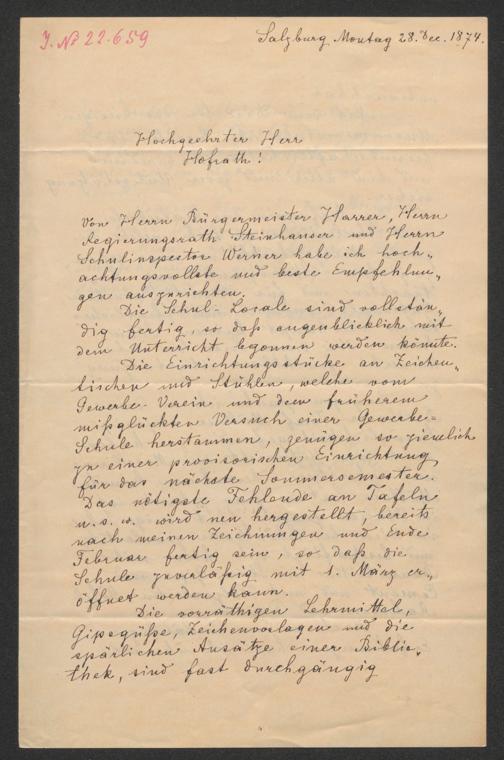 J. № 22.659
Salzburg Montag 28. Dec. 1874.
Hochgeehrter Herr
Hofrath!
Von Herrn Bürgermeister Harrer, Herrn
Regierungsrath Steinhauser und Herrn
Schulinspector Werner habe ich hoch„
achtungsvollste und beste Empfehlun„
gen auszurichten.
Die Schul-Locale sind vollstän„
dig fertig, so daß augenblicklich mit
dem Unterricht begonnen werden könnte.
Die Einrichtungsstücke an Zeichen„
tischen und Stühlen, welche vom
Gewerbe-Verein und dem früheren
mißglückten Versuch einer Gewerbe=
Schule herstammen, genügen so ziemlich
zu einer provisorischen Einrichtung
für das nächste Sommersemester.
Das nötigste Fehlende an Tafeln
u. s. w. wird neu hergestellt, bereits
nach meinen Zeichnungen und Ende
Februar fertig sein, so daß die
Schule zuverläßig mit 1. März er„
öffnet werden kann.
Die vorräthigen Lehrmittel,
Gipsgüße, Zeichenvorlagen und die
spärlichen Ansätze einer Biblio„
thek, sind fast durchgängig